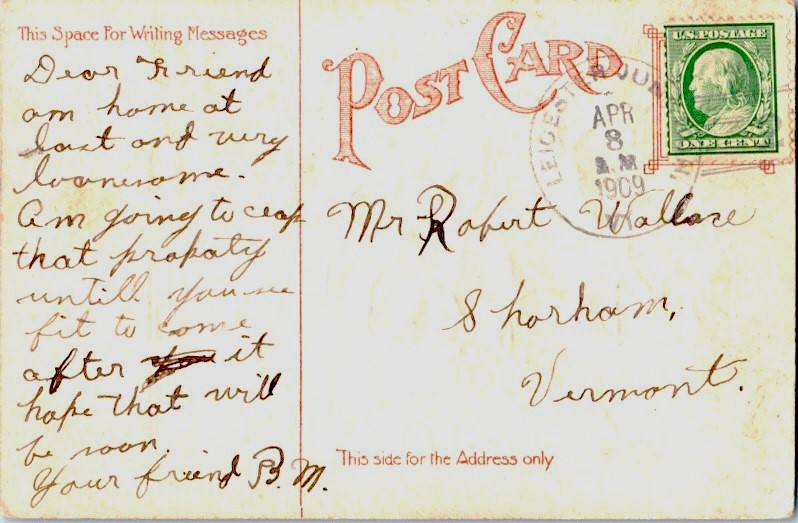 This Space For Writing Messages
Dear Friend
am home at
last and very
loanesome.
Am going to ceap
that propaty
untill you see
fit to come
after it
hope that will
be soon.
Your friend B. M.
POST CARD
LEICESTER JUN
APR
8
A.M
1909
U.S. POSTAGE
ONE CENT
Mr Robert Wallace
Shorham,
Vermont.
This side for the Address only